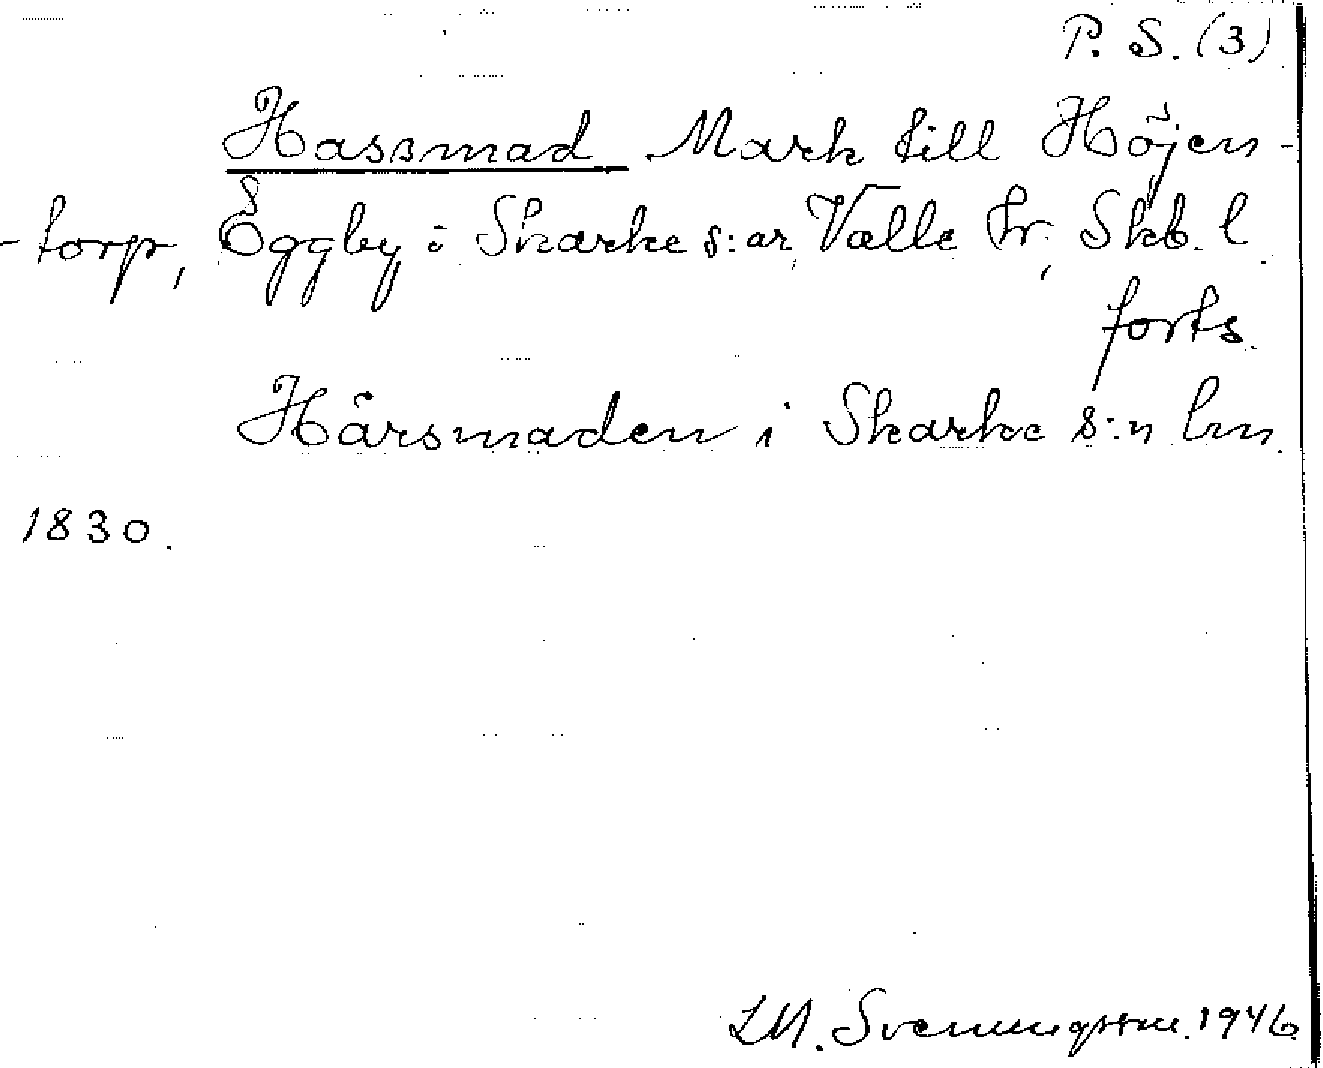 P. S. (3)
Hassmad Mark till Höjen-
-torp, Eggby i Skarke s:ar, Valle hr, Skb. l.
forts.
Hårsmaden i Skarke s:n lm
1830.
LM. Svenungsson 1946